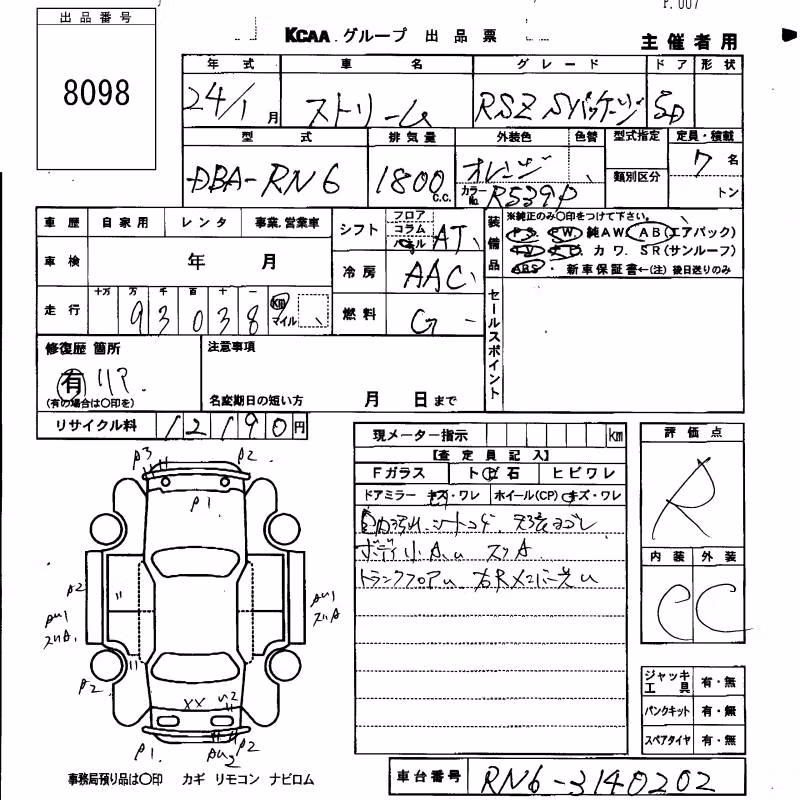 出品番号
8098
P. 007
KCAA グループ 出品票
主催者用
年式 車名 グレード ドア 形状
24/1月 ストリーム RSZ Sパッケージ 5D
型式 排気量 外装色 色替 型式指定 定員・積載
DBA-RN6 1800 c.c. オレンジ 類別区分 7名
カラーNo. R539P トン
車歴 自家用 レンタ 事業.営業車
車検 年 月
走行 十万 万 千 百 十 一
93038 km マイル
シフト フロア コラム パネル AT
冷房 AAC
燃料 G
装備品 ※純正のみ〇印をつけて下さい。
PS. PW 純AW. AB(エアバック)
TV ナビ. カワ. SR(サンルーフ)
ABS ・ 新車保証書←(注)後日送りのみ
セールスポイント
修復歴 箇所
有 リア.
(有の場合は〇印を)
注意事項
名変期日の短い方 月 日まで
リサイクル料 12190円
現メーター指示 km
【査定員記入】
Fガラス トビ石 ヒビワレ
ドアミラー キズ・ワレ ホイール(CP) キズ・ワレ
内汚れ シートコゲ. 天張ヨゴレ
ボディ小AU スリA
トランクフロアU 右Rメンバー先U
評価点
R
内装 外装
C C
ジャッキ工具 有・無
パンクキット 有・無
スペアタイヤ 有・無
P3 P2
P1
A2
AU1
スリA.
AU1
スリA
P2
XX U2
P1 AU2 P2
事務局預り品は〇印 カギ リモコン ナビロム
車台番号 RN6-3140202